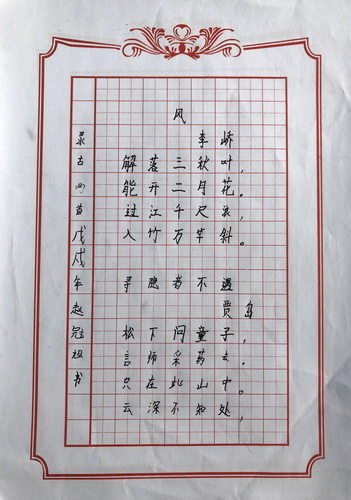 风
李峤
解落三秋叶，
能开二月花。
过江千尺浪，
入竹万竿斜。
寻隐者不遇
贾岛
松下问童子，
言师采药去。
只在此山中。
云深不知处，
录古两首戊戌年赵冠祖书